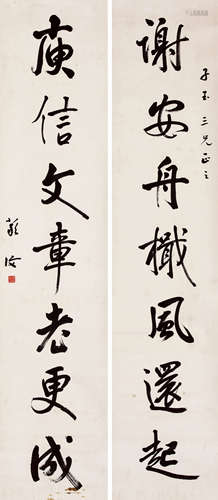 子玉三兄正之
謝安舟檝風還起
庾信文章老更成